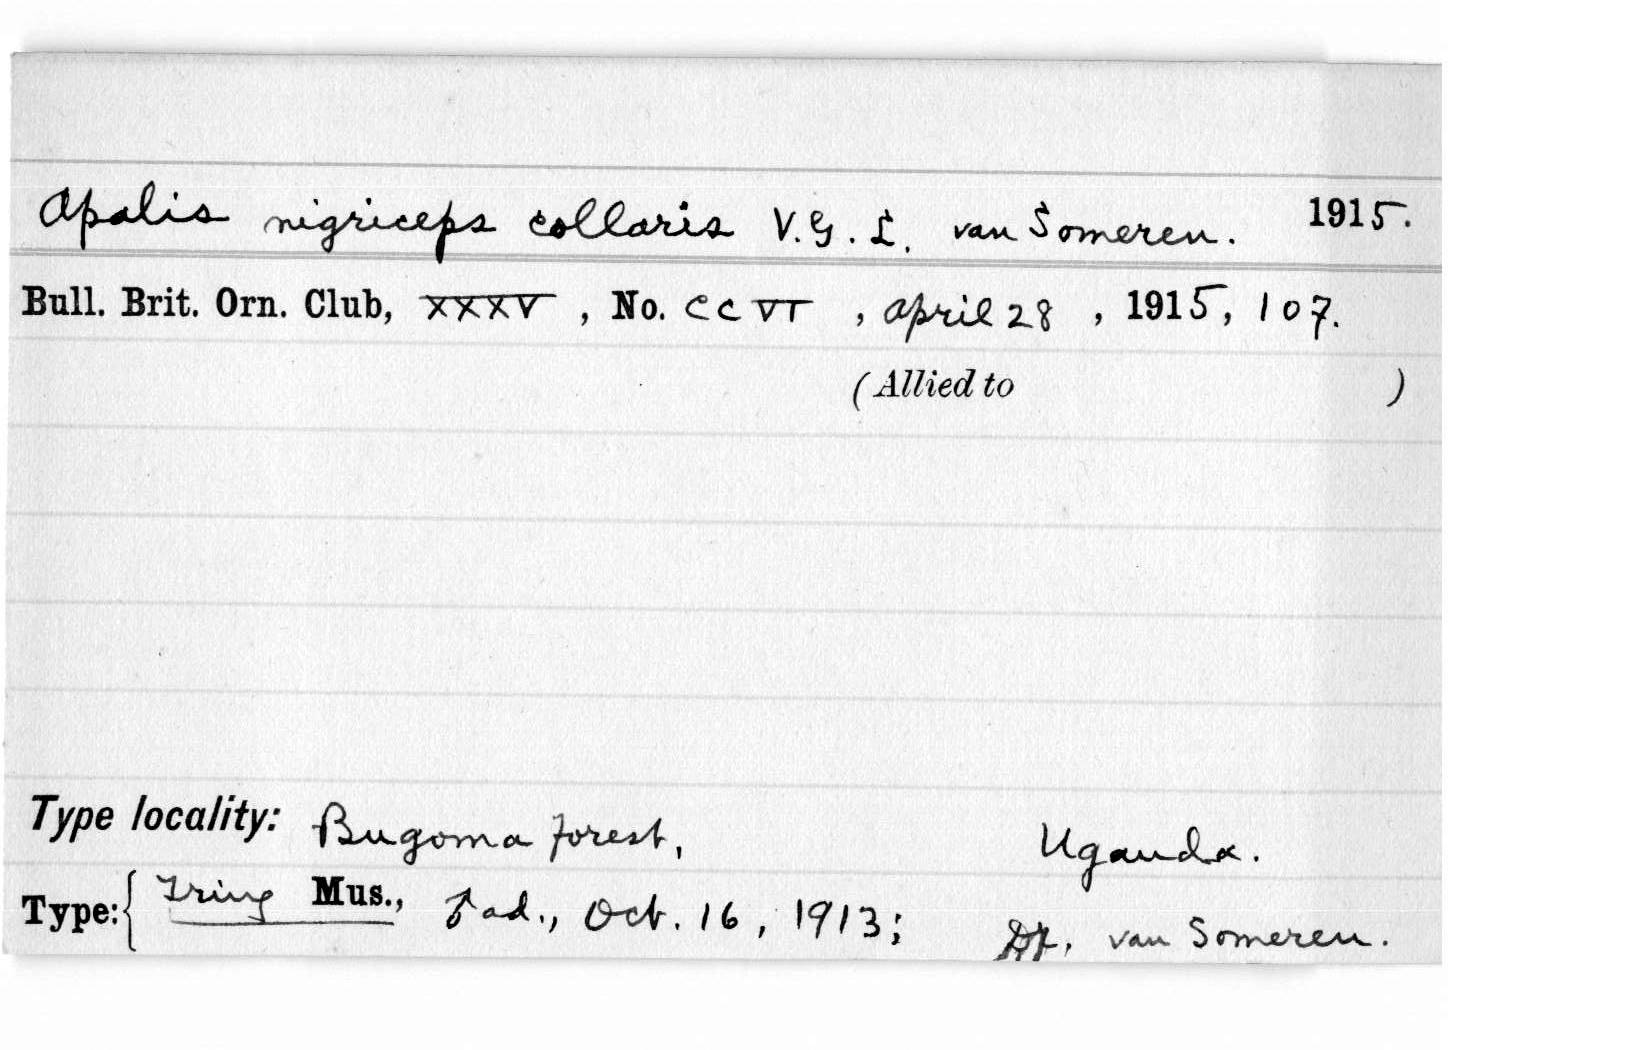 Apalis nigriceps collaris V.G.L. van Someren. 1915.
Bull. Brit. Orn. Club, XXXV, No. CCVI, April 28, 1915, 107.
(Allied to )
Type locality: Bugoma forest, Uganda.
Type: { Tring Mus., ♂ ad., Oct. 16, 1913; Dr. van Someren.